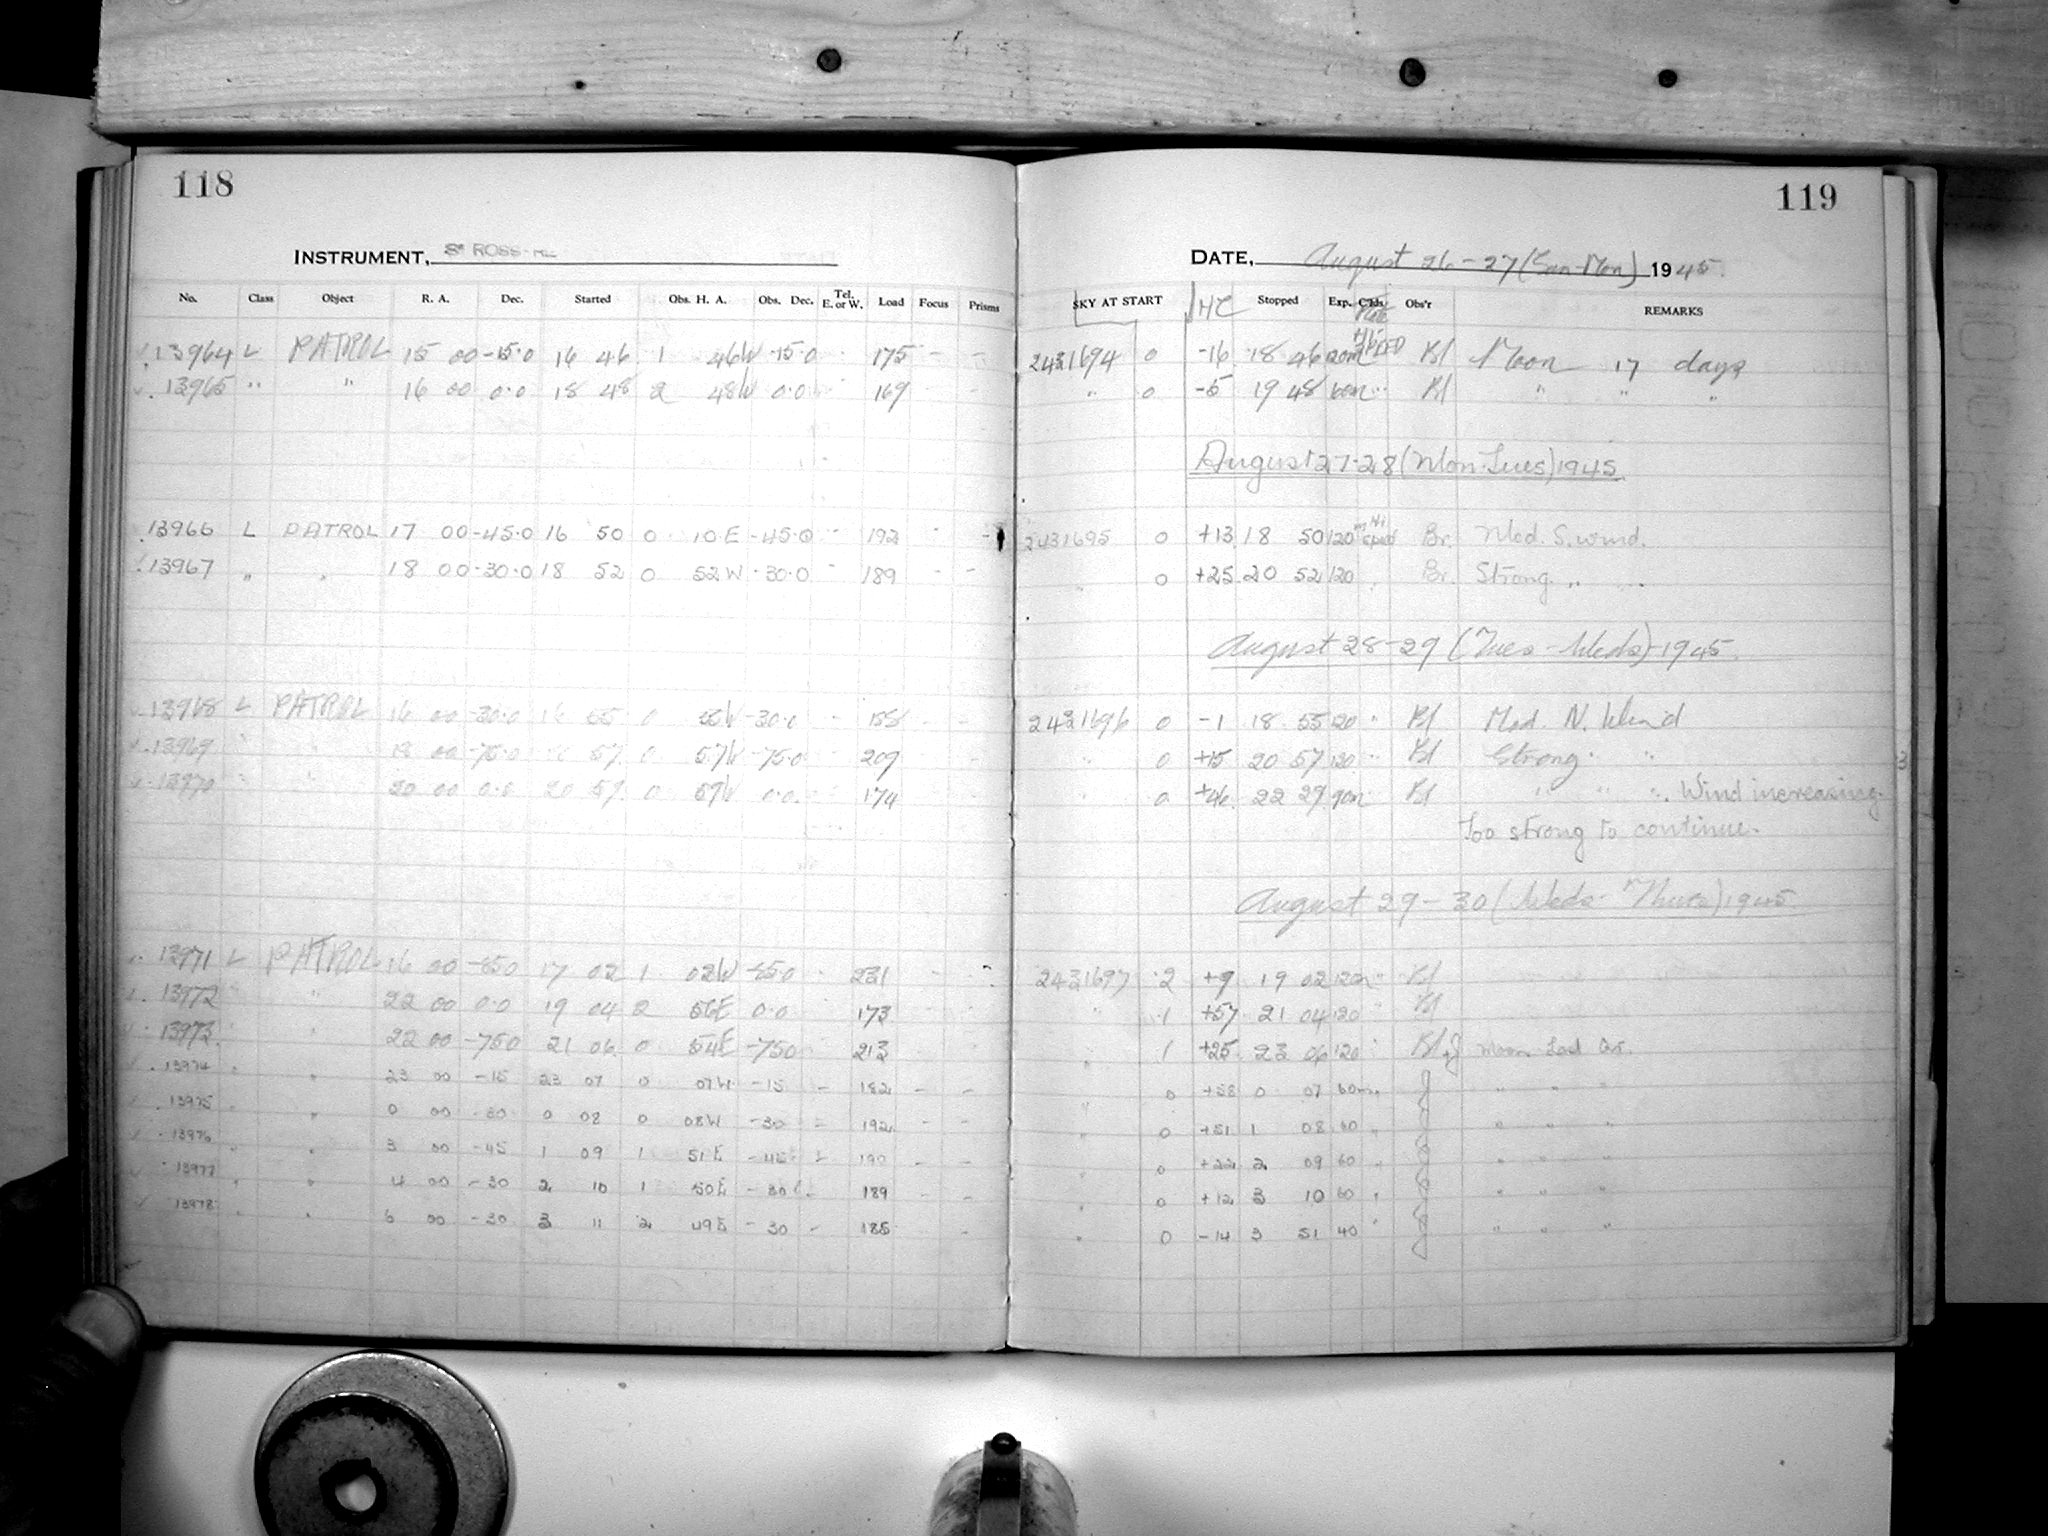 118
INSTRUMENT, 8" ROSS-
No. Class Object R. A. Dec. Started Obs. H. A. Obs. Dec. Tel. E. or W. Load Focus Prisms
13964 L PATROL 15 00 -15.0 16 46 1 46W -15.0 175
13965 " " 16 00 0.0 18 48 2 48W 0.0 169
13966 L PATROL 17 00 -45.0 16 50 0 10.E -45.0 192
13967 " " 18 00 -30.0 18 52 0 52W -30.0 189
13968 L PATROL 16 00 -30.0 16 55 0 55W -30.0
13969 " " 18 00 -75.0 57 0 57W -75.0 209
13970 " " 20 00 0.0 20 59 0 59W 0.0 174
13971 L PATROL 16 00 17 02 1 02W 231
13972 " 22 00 0.0 19 04 2 56E 0.0 173
13973 " 22 00 -750 21 06 0 54E -750 213
13974 " " 23 00 -15 23 07 0 07W -15 - 182 - -
13975 " " 0 00 -30 0 08 0 08W -30 - 192 - -
13976 " " 3 00 -45 1 09 1 51E -45 - 190 - -
13977 " " 4 00 -30 2 10 1 50E -30 - 189 - -
13978 " " 6 00 -30 3 11 2 49E -30 - 185 -
119
DATE, August 26-27 (Sun-Mon) 1945.
SKY AT START HC Stopped Exp. Clds. Plate Obs'r REMARKS
2431694 0 -16 18 46 120m Hi SPEED Bl Moon 17 days
" 0 -5 19 48 60m " Bl " " "
August 27-28 (Mon-Tues) 1945
2431695 0 +13 18 50 120 m Hi speed Br. Mod. S. wind.
" 0 +25 20 52 120 " Br. Strong " "
August 28-29 (Tues-Weds) 1945.
2431696 0 -1 18 55 120 " Bl Mod. N. Wind
" 0 +15 20 57 120 " Bl Strong " "
" 0 +46 22 29 90m " Bl " " ". Wind increasing.
Too strong to continue.
August 29-30 (Weds-Thurs) 1945.
2431697 2 +9 19 02 120m " Bl
" 1 +57 21 04 120 " Bl
" 1 +25 23 06 120 " Bl+J Moon Last Qr.
" 0 +38 0 07 60m " J " " "
" 0 +51 1 08 60 " J " " "
" 0 +22 2 09 60 " J " " "
" 0 +12 3 10 60 " J " " "
" 0 -14 3 51 40 " J " " "